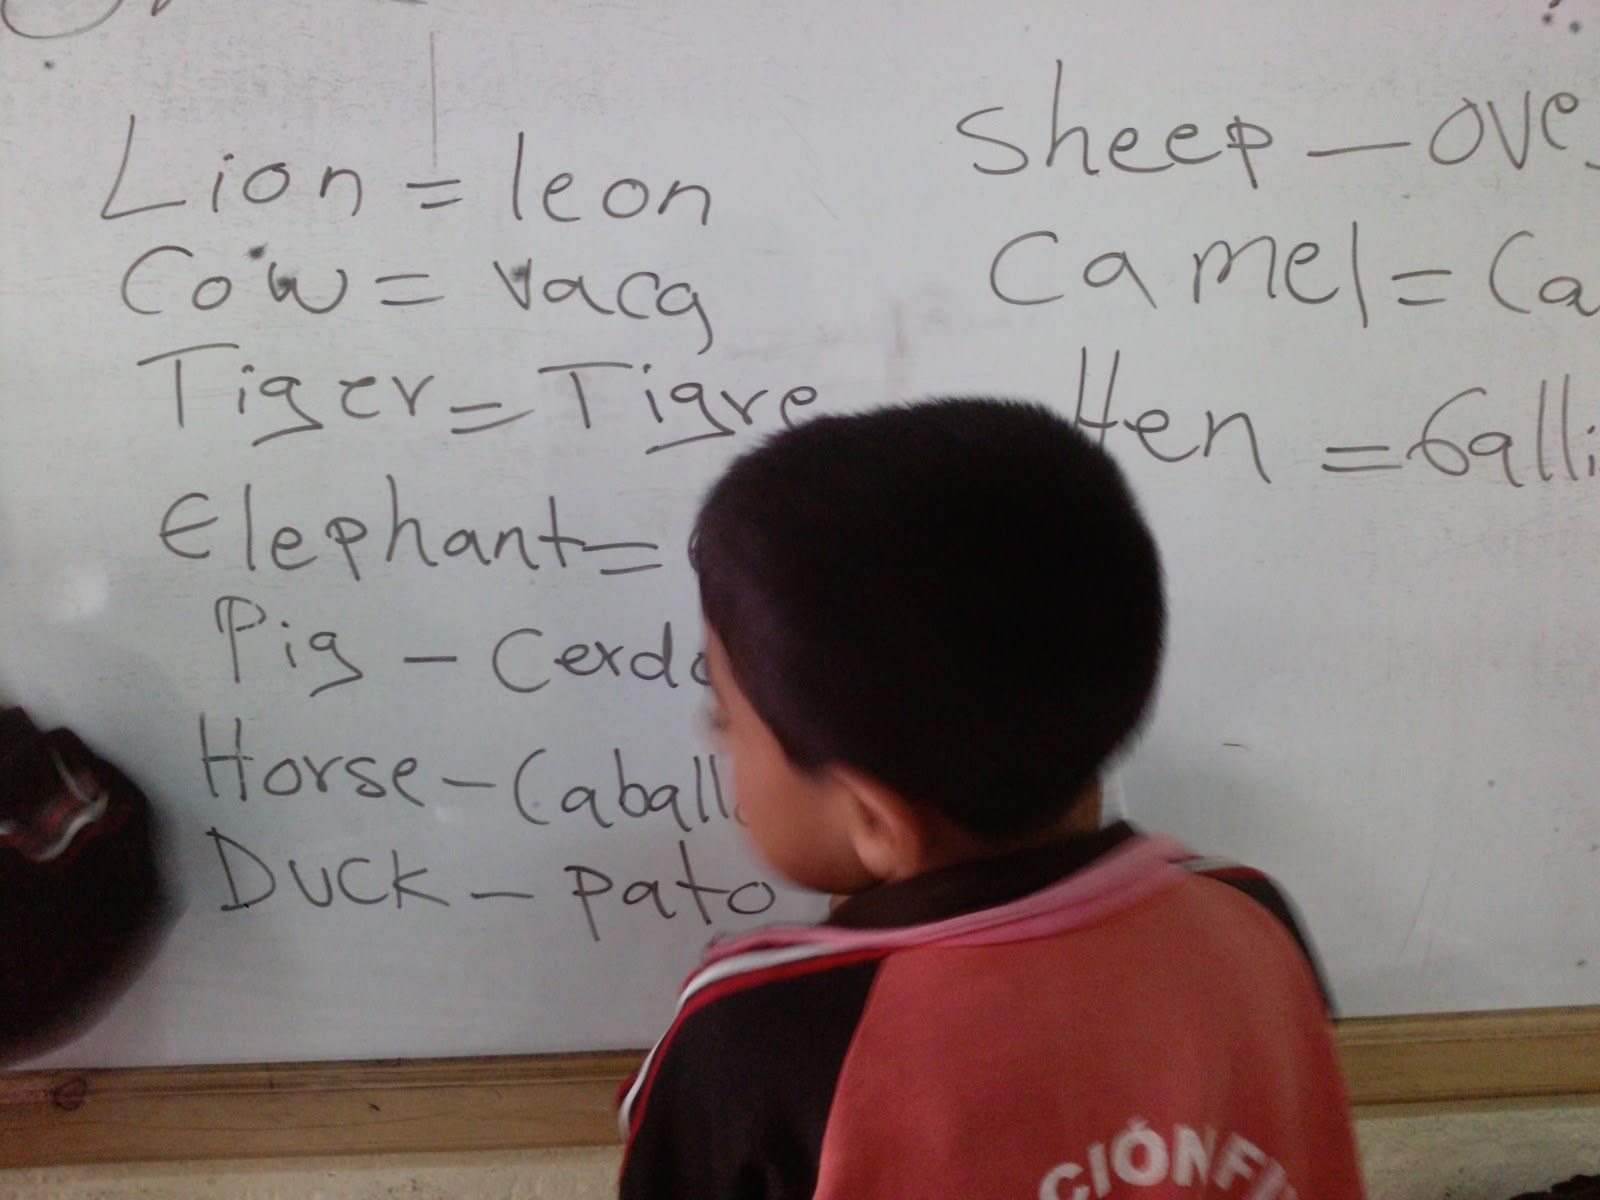 Lion = leon
Cow = vaca
Tiger = Tigre
Elephant =
Pig - Cerdo
Horse - Caball
Duck - pato
Sheep - ove
Camel = Ca
Hen = Galli
CIÓNF